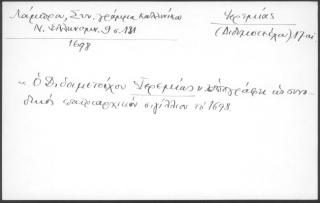 Λάμπρου, Συγγράμμα καλλινίκου
Ν. Ελληνομν. 9 σ 181
1698
Ιερεμίας
(Διδυμοτείχου) 17 αι
« ὁ Διδυμοτείχου Ἱερεμίας ὑπογράφει ὡς συνο-
δικός πατριαρχικόν σιγίλλιον τῷ 1698.